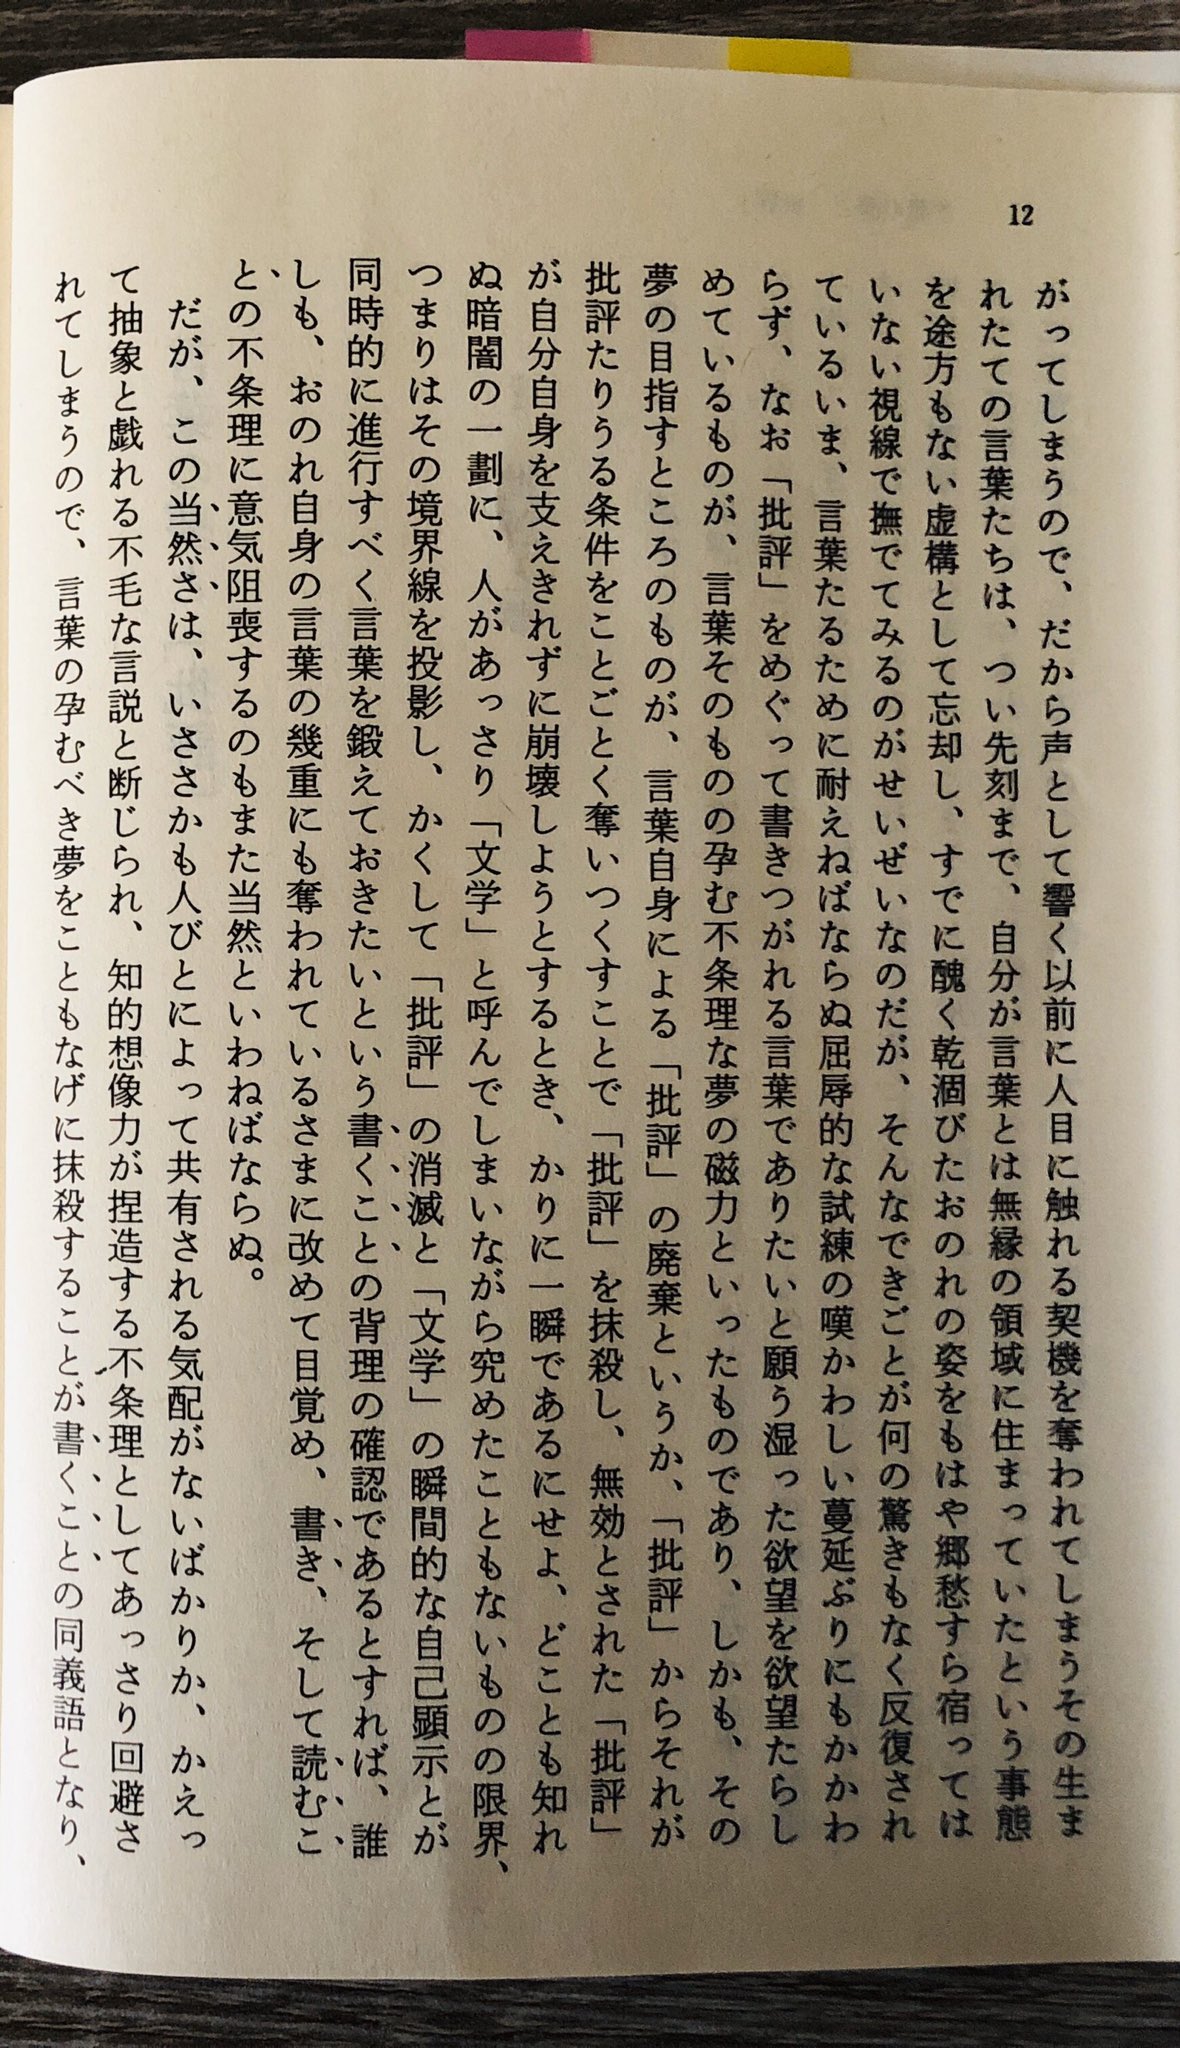 12
がってしまうので、だから声として響く以前に人目に触れる契機を奪われてしまうその生ま
れたての言葉たちは、つい先刻まで、自分が言葉とは無縁の領域に住まっていたという事態
を途方もない虚構として忘却し、すでに醜く乾涸びたおのれの姿をもはや郷愁すら宿っては
いない視線で撫でてみるのがせいぜいなのだが、そんなできごとが何の驚きもなく反復され
ているいま、言葉たるために耐えねばならぬ屈辱的な試練の嘆かわしい蔓延ぶりにもかかわ
らず、なお「批評」をめぐって書きつがれる言葉でありたいと願う湿った欲望を欲望たらし
めているものが、言葉そのものの孕む不条理な夢の磁力といったものであり、しかも、その
夢の目指すところのものが、言葉自身による「批評」の廃棄というか、「批評」からそれが
批評たりうる条件をことごとく奪いつくすことで「批評」を抹殺し、無効とされた「批評」
が自分自身を支えきれずに崩壊しようとするとき、かりに一瞬であるにせよ、どことも知れ
ぬ暗闇の一劃に、人があっさり「文学」と呼んでしまいながら究めたこともないものの限界、
つまりはその境界線を投影し、かくして「批評」の消滅と「文学」の瞬間的な自己顕示とが
同時的に進行すべく言葉を鍛えておきたいという書くことの背理の確認であるとすれば、誰
しも、おのれ自身の言葉の幾重にも奪われているさまに改めて目覚め、書き、そして読むこ
との不条理に意気阻喪するのもまた当然といわねばならぬ。
だが、この当然さは、いささかも人びとによって共有される気配がないばかりか、かえっ
て抽象と戯れる不毛な言説と断じられ、知的想像力が捏造する不条理としてあっさり回避さ
れてしまうので、言葉の孕むべき夢をこともなげに抹殺することが書くことの同義語となり、